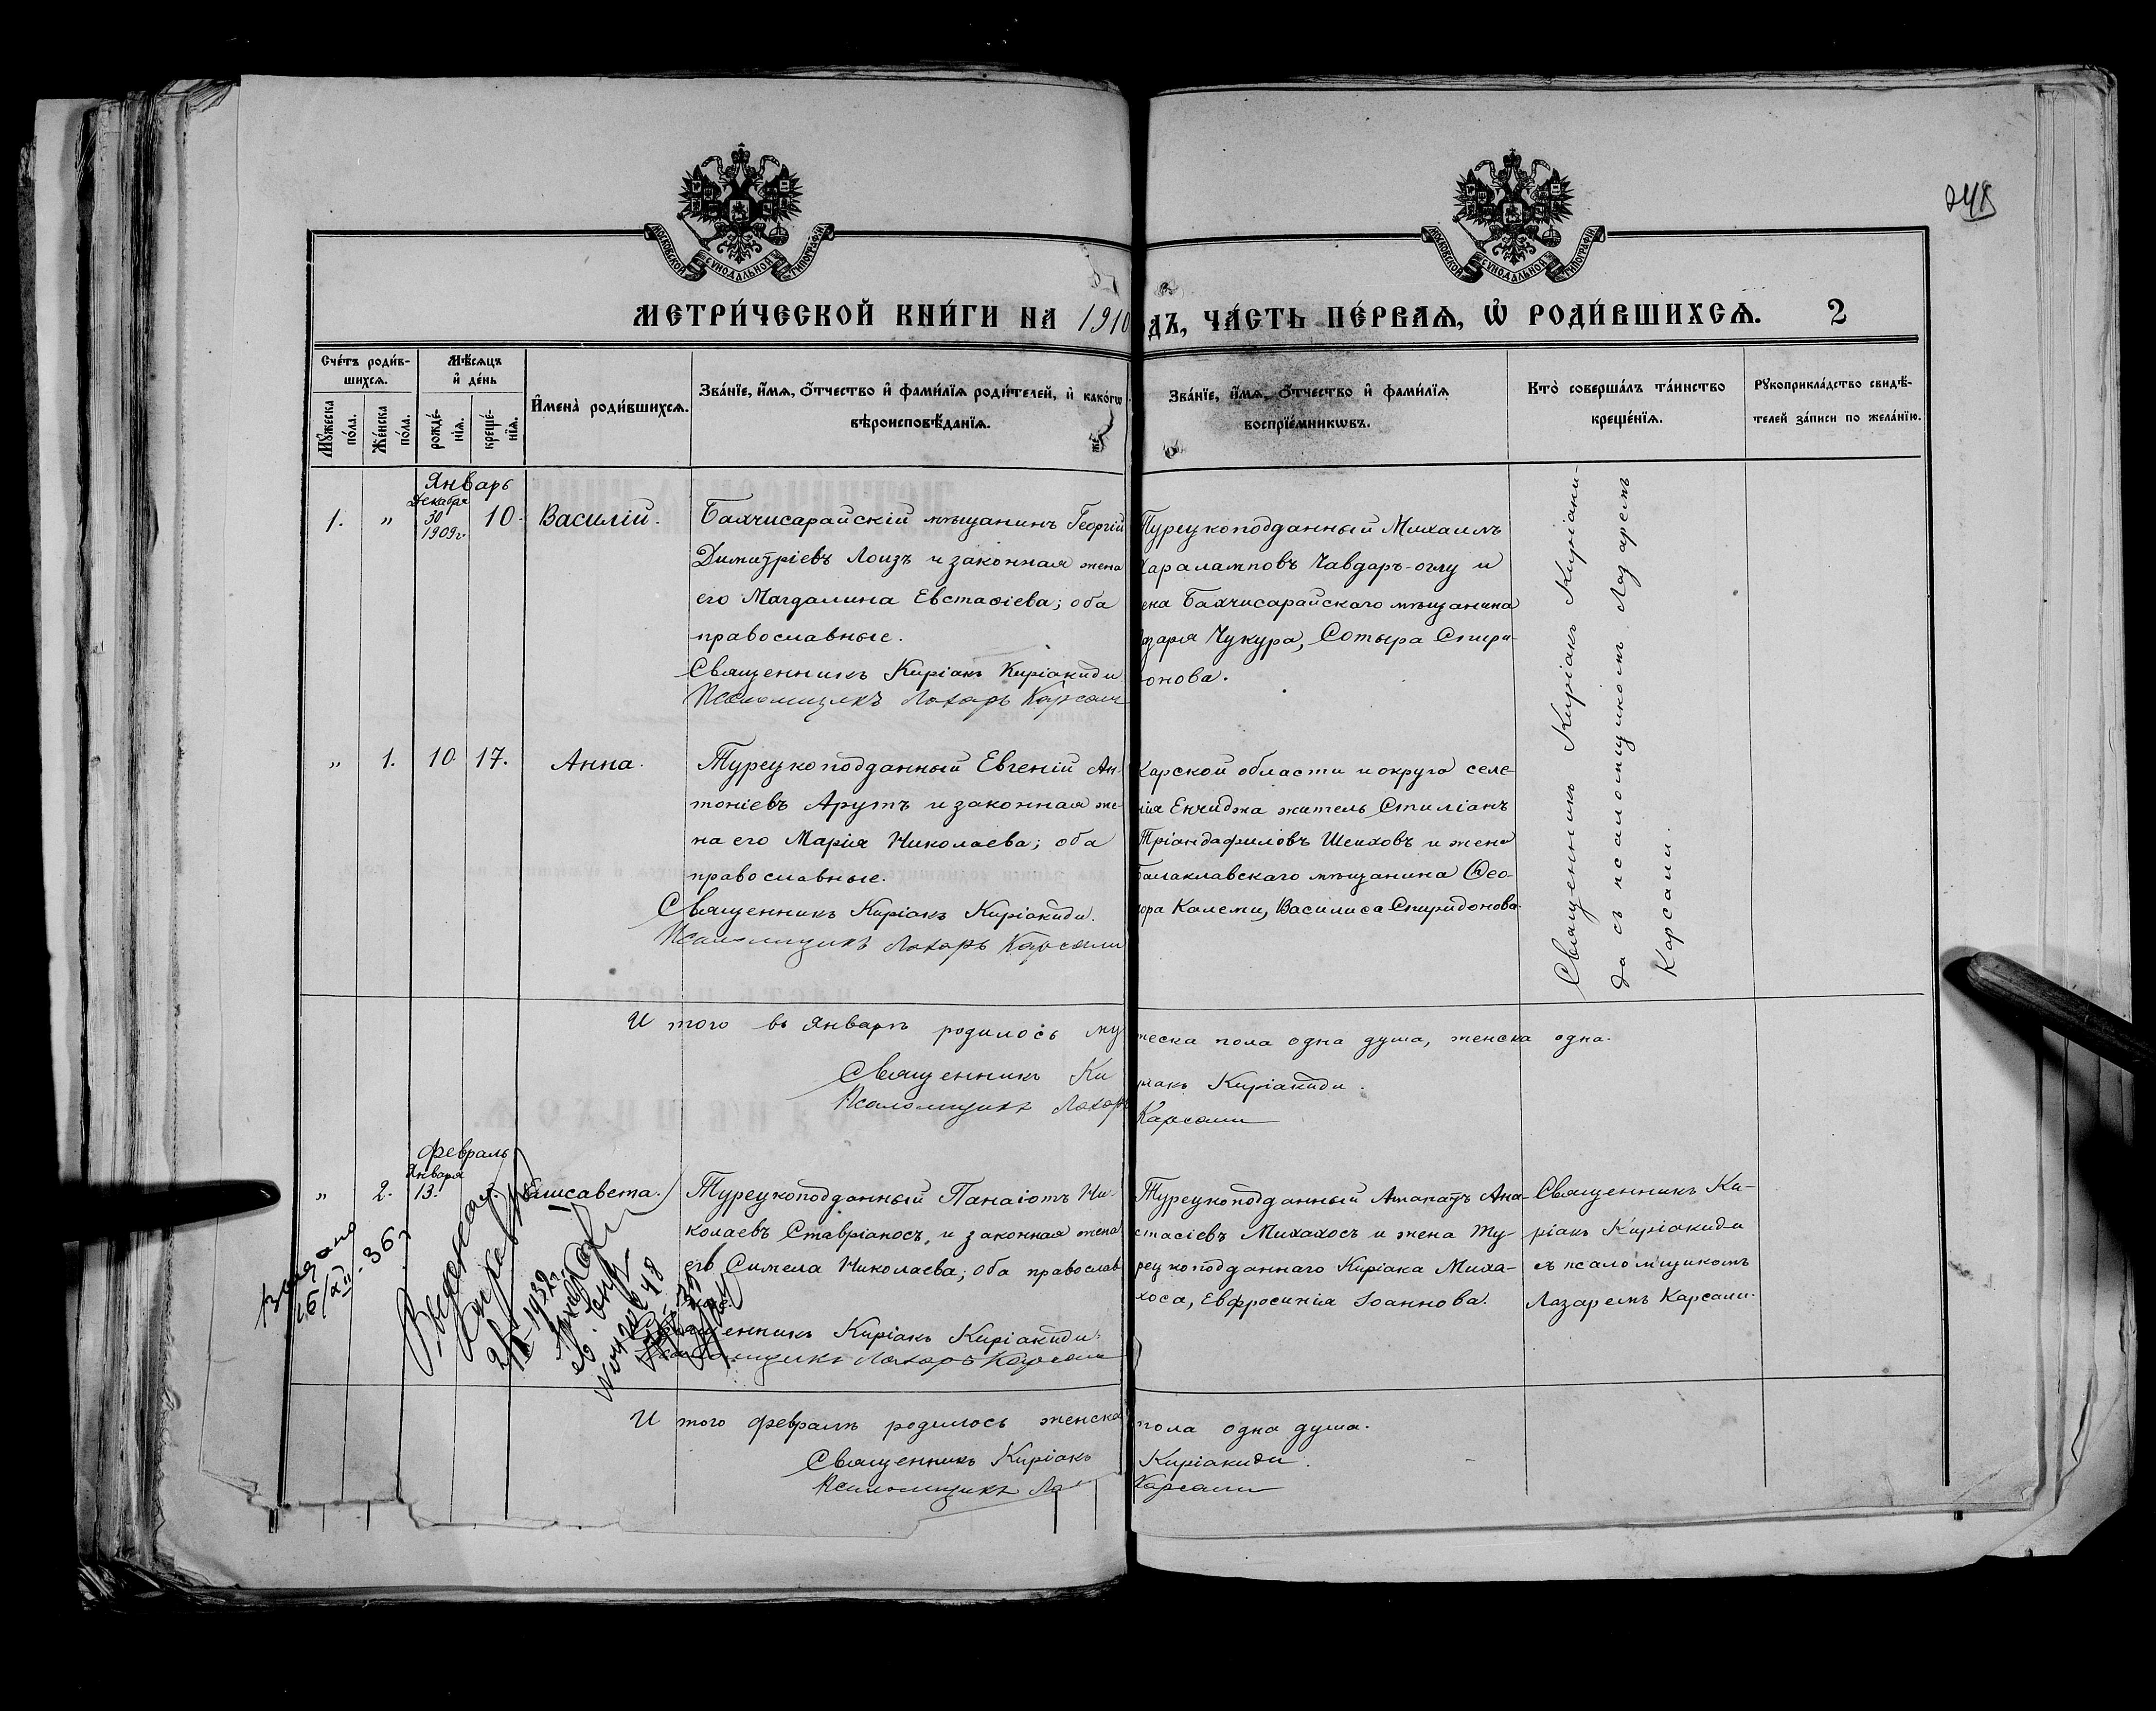 248
МОСКОВСКОЙ СѴНОДАЛЬНОЙ ТИПОГРАФІИ
МОСКОВСКОЙ СѴНОДАЛЬНОЙ ТИПОГРАФІИ
МЕТРИ́ЧЕСКОЙ КНИ́ГИ НА 1910
ДЪ, ЧА́СТЬ ПЕ́РВАѦ, Ѡ҆ РОДИ́ВШИХСѦ. 2
Сче́тъ роди́в-
шихсѧ.
Мѣ́сѧцъ
и҆ де́нь
Мꙋ́жеска
по́ла.
Же́нска
по́ла.
рожде́-
нїѧ.
креще́-
нїѧ.
И҆мена̀ роди́вшихсѧ.
Зва́нїе, и҆́мѧ, ѻ҆́тчество и҆ фами́лїѧ роди́телей, и҆ како́гѡ
вѣроисповѣ́данїѧ.
Зва́нїе, и҆́мѧ, ѻ҆́тчество и҆ фами́лїѧ
воспрїе́мникѡвъ.
Кто̀ соверша́лъ та́инство
креще́нїѧ.
Рꙋкоприкла́дство свидѣ́-
телей за́писи по жела́нїю.
Январь
Декабря
30
1909г.
1. „ 10. Василій.
Бахчисарайскій мѣщанинъ Георгій
Димитріевъ Лоизъ и законная жена
его Магдалина Евстаѳіева; оба
православные.
Священникъ Киріакъ Киріакиди
Псаломщикъ Лазарь Карсали
Турецкоподданный Михаилъ
Хараламповъ Чавдаръ-оглу и
ена Бахчисарайскаго мѣщанина
заря Чукура, Сотыра Спири-
онова.
Священникъ Киріакъ Киріаки-
да съ псаломщикомъ Лазаремъ
Карсали.
„ 1. 10. 17. Анна.
Турецкоподданный Евгеній Ан-
тоніевъ Арутъ и законная же-
на его Марія Николаева; оба
православные.
Священникъ Киріакъ Киріакиди.
Псаломщикъ Лазарь Карсали
Карской области и округа селе-
нія Енчиджа житель Стиліанъ
Тріандафиловъ Шеиховъ и жена
Балаклавскаго мѣщанина Ѳео-
дора Калеми, Василиса Спиридонова.
И того въ Январѣ родилось му
жеска пола одна душа, женска одна.
Священникъ Ки
ріакъ Киріакиди.
Псаломщикъ Лазарь
Карсали
Февраль
Января
„ 2. 13. Елисавета.
Турецкоподданный Панаіотъ Ни-
колаевъ Ставріаносъ, и законная жена
его Симела Николаева; оба православ
Священникъ Киріакъ Киріакиди.
Псаломщикъ Лазарь Карсали
Турецкоподданный Ана-
стасіевъ Михахосъ и жена Ту-
рецкоподданнаго Киріака Миха-
хоса, Евфросинія Іоаннова.
Священникъ Ки-
ріакъ Киріакиди
съ псаломщикомъ
Лазаремъ Карсали.
Выдано
36
1932г.
И того февралѣ родилось женска
пола одна душа.
Священникъ Киріакъ
Киріакиди.
Псаломщикъ Ла
Карсали